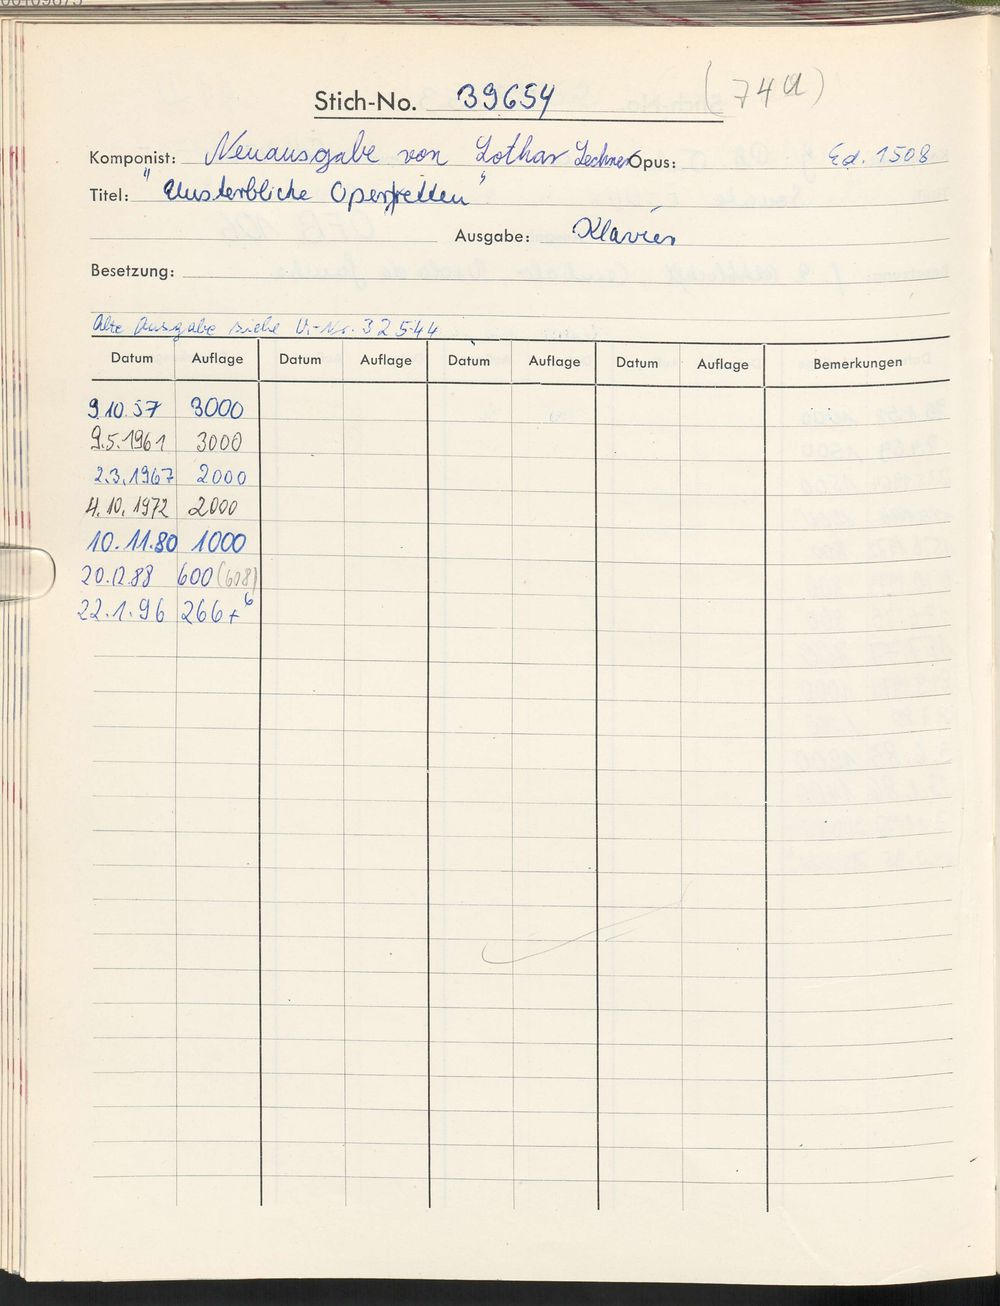 Stich-No. 39654 (74 a)
Komponist: Neuausgabe von Lothar Lechner Opus: Ed. 1508
Titel: "Unsterbliche Operetten"
Ausgabe: Klavier
Besetzung:
Alte Ausgabe siehe V.-Nr. 32544
Datum Auflage Datum Auflage Datum Auflage Datum Auflage Bemerkungen
9.10.57 3000
9.5.1961 3000
2.3.1967 2000
4.10.1972 2000
10.11.80 1000
20.12.88 600 (608)
22.1.96 266 + 6